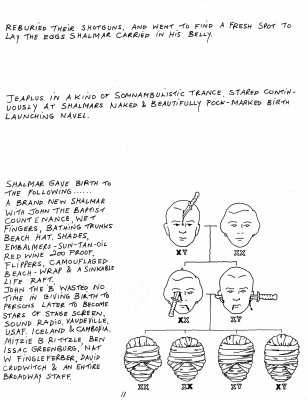 REBURIED THEIR SHOTGUNS, AND WENT TO FIND A FRESH SPOT TO
LAY THE EGGS SHALMAR CARRIED IN HIS BELLY.
JEAPLUS IN A KIND OF SOMNAMBULISTIC TRANCE, STARED CONTIN-
UOUSLY AT SHALMARS NAKED & BEAUTIFULLY POCK-MARKED BIRTH
LAUNCHING NAVEL.
SHALMAR GAVE BIRTH TO
THE FOLLOWING......
A BRAND NEW SHALMAR
WITH JOHN THE BAPTIST
COUNTENANCE, WET
FINGERS, BATHING TRUNKS
BEACH HAT, SHADES,
EMBALMERS-SUN-TAN-OIL
RED WINE 200 PROOF,
FLIPPERS, CAMOUFLAGED
BEACH-WRAP & A SINKABLE
LIFE RAFT.
JOHN THE B WASTED NO
TIME IN GIVING BIRTH TO
PERSONS LATER TO BECOME
STARS OF STAGE SCREEN,
SOUND RADIO, VAUDEVILLE,
USAF. ICELAND & CAMBODIA.
MITZIE B RITTZLE, BEN
ISSAC GREENBURG, NAT
W FINGLEFERBER, DAVID
CRUDWITCH & AN ENTIRE
BROADWAY STAFF.
XY XX
XX XY
XX XY XX XY
11